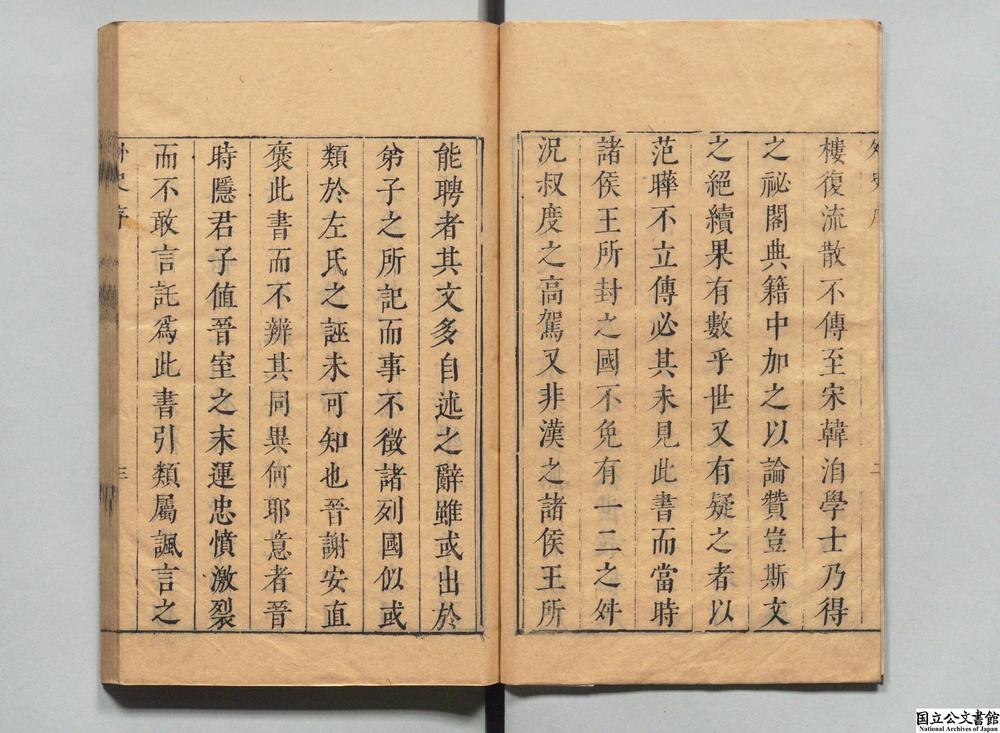 樓復流散不傳至宋韓洎學士乃得
之祕閣典籍中加之以論贊豈斯文
之絕續果有數乎世又有疑之者以
范曄不立傳必其未見此書而當時
諸侯王所封之國不免有一二之舛
況叔度之高駕又非漢之諸侯王所
能聘者其文多自述之辭雖或出於
弟子之所記而事不徵諸列國似或
類於左氏之誣未可知也晉謝安直
褒此書而不辨其同異何耶意者晉
時隱君子値晉室之末運忠憤激裂
而不敢言託爲此書引類屬諷言之
外史序
三
国立公文書館
National Archives of Japan